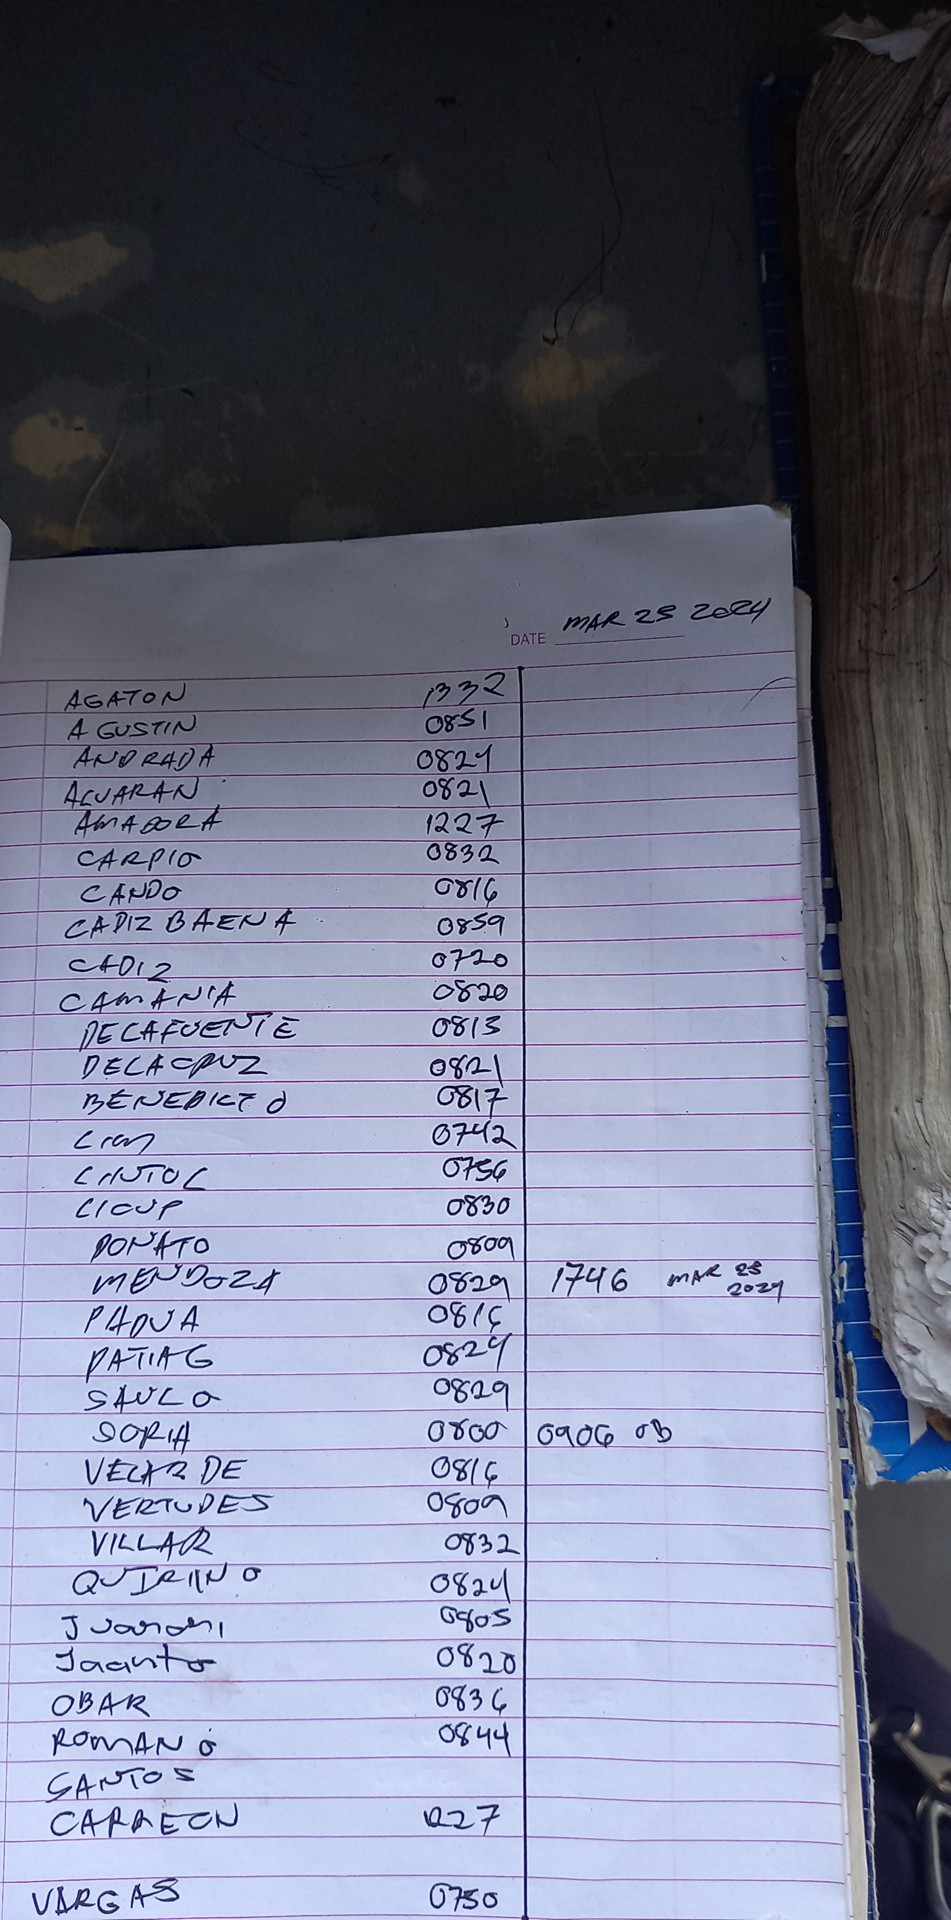 DATE MAR 25 2024
AGATON 1332
AGUSTIN 0851
ANDRADA 0824
ALVARAN 0821
AMADORA 1227
CARPIO 0832
CANDO 0816
CADIZ BAENA 0859
CADIZ 0720
CAMANIA 0820
DELAFUENTE 0813
DELACRUZ 0821
BENEDICTO 0817
LIM 0742
0756
LICUP 0830
DONATO 0809
MENDOZA 0829 1746 MAR 25 2024
PADUA 0816
PATIAG 0824
SAULO 0829
SORIA 0800 0906 OB
VELARDE 0816
VERTUDES 0809
VILLAR 0832
QUIRINO 0824
0805
Jacinto 0820
OBAR 0836
ROMANO 0844
SANTOS
CARREON 1227
VARGAS 0750